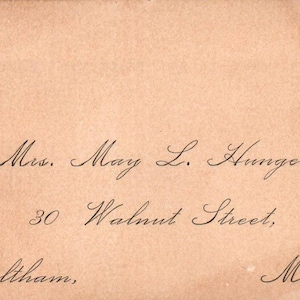 Mrs. May L. Hunge
30 Walnut Street,
ltham, M